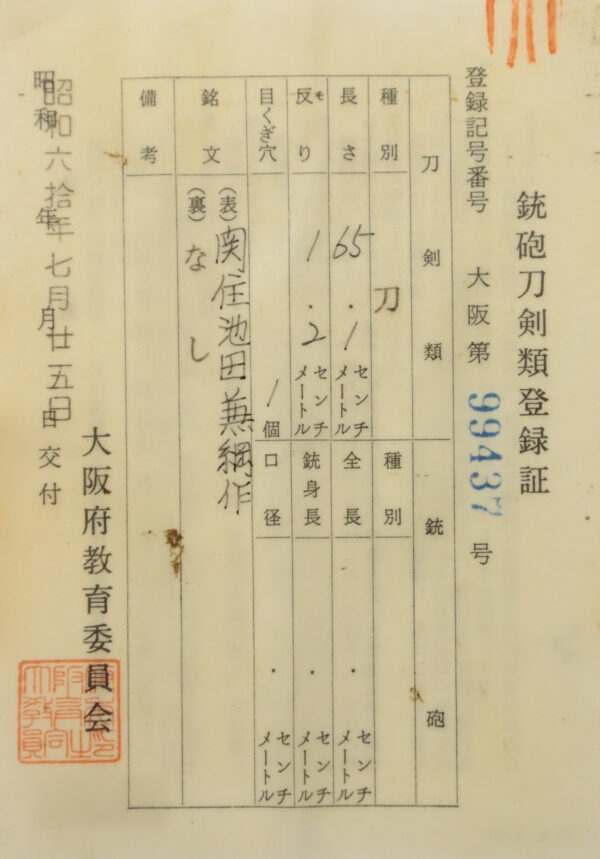 銃砲刀剣類登録証
登録記号番号 大阪第 99437 号
刀剣類 銃砲
種別 刀
種別
長さ 65.1センチメートル
全長 ・センチメートル
反り 1.2センチメートル
銃身長 ・センチメートル
目くぎ穴 1個
口径 ・センチメートル
銘文 (表)関住池田兼綱作
(裏)なし
備考
昭和六拾年七月廿五日
昭和 年 月 日交付
大阪府教育委員会